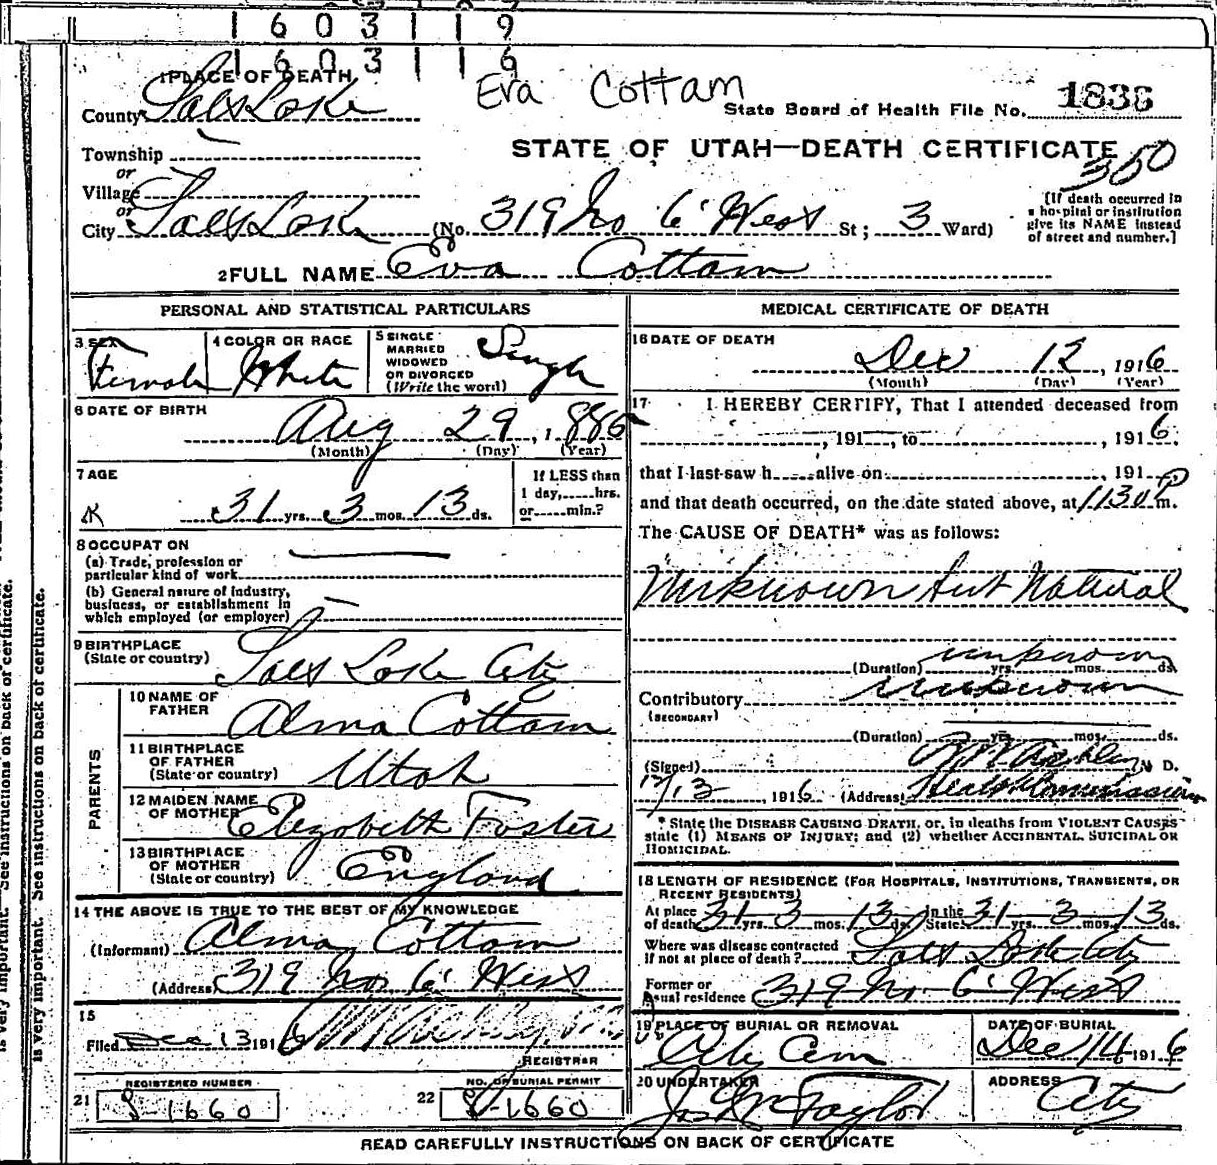 1 6 0 3 1 1 9
1 6 0 3 1 1 6
1 PLACE OF DEATH
Eva Cottam
State Board of Health File No. 1836
County Salt Lake
STATE OF UTAH—DEATH CERTIFICATE
350
Township
or
Village
or
City Salt Lake (No. 319 No 6' West St; 3 Ward)
[If death occurred in
a hospital or institution
give its NAME instead
of street and number.]
2 FULL NAME Eva Cottam
PERSONAL AND STATISTICAL PARTICULARS
3 SEX
Female
4 COLOR OR RACE
White
5 SINGLE
MARRIED
WIDOWED
OR DIVORCED
(Write the word)
Single
6 DATE OF BIRTH
Aug 29, 1885
(Month) (Day) (Year)
7 AGE
31 yrs. 3 mos. 13 ds.
If LESS than
1 day, hrs.
or min.?
8 OCCUPATION
(a) Trade, profession or
particular kind of work
(b) General nature of industry,
business, or establishment in
which employed (or employer)
9 BIRTHPLACE
(State or country) Salt Lake City
PARENTS
10 NAME OF
FATHER Alma Cottam
11 BIRTHPLACE
OF FATHER
(State or country) Utah
12 MAIDEN NAME
OF MOTHER Elizabeth Foster
13 BIRTHPLACE
OF MOTHER
(State or country) England
14 THE ABOVE IS TRUE TO THE BEST OF MY KNOWLEDGE
(Informant) Alma Cottam
(Address) 319 No 6' West
15
Filed Dec 13 1916
REGISTRAR
21 REGISTERED NUMBER
S-1660
22 NO. OF BURIAL PERMIT
S-1660
MEDICAL CERTIFICATE OF DEATH
16 DATE OF DEATH
Dec 12, 1916
(Month) (Day) (Year)
17 I HEREBY CERTIFY, That I attended deceased from
, 191 , to , 1916,
that I last saw h alive on , 191
and that death occurred, on the date stated above, at 11 30 P m.
The CAUSE OF DEATH* was as follows:
Unknown but Natural
unknown
(Duration) yrs. mos. ds.
Contributory unknown
(SECONDARY)
(Duration) yrs. mos. ds.
(Signed) M. D.
12/13, 1916 (Address) Health Commissioner
* State the DISEASE CAUSING DEATH, or, in deaths from VIOLENT CAUSES
state (1) MEANS OF INJURY; and (2) whether ACCIDENTAL, SUICIDAL OR
HOMICIDAL.
18 LENGTH OF RESIDENCE (FOR HOSPITALS, INSTITUTIONS, TRANSIENTS, OR
RECENT RESIDENTS)
At place of death 31 yrs. 3 mos. 13 ds. In the State 31 yrs. 3 mos. 13 ds.
Where was disease contracted
If not at place of death? Salt Lake City
Former or
usual residence 319 No 6' West
19 PLACE OF BURIAL OR REMOVAL
City Cem
DATE OF BURIAL
Dec 14 1916
20 UNDERTAKER
Taylor
ADDRESS
City
READ CAREFULLY INSTRUCTIONS ON BACK OF CERTIFICATE
is very important. See instructions on back of certificate.
is very important. See instructions on back of certificate.